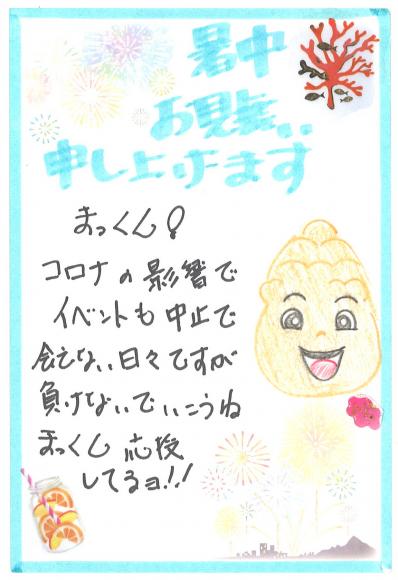 暑中
お見舞い
申し上げます
まっくん!
コロナの影響で
イベントも中止で
会えない日々ですが
負けないでいこうね
まっくん応援
してるョ!!